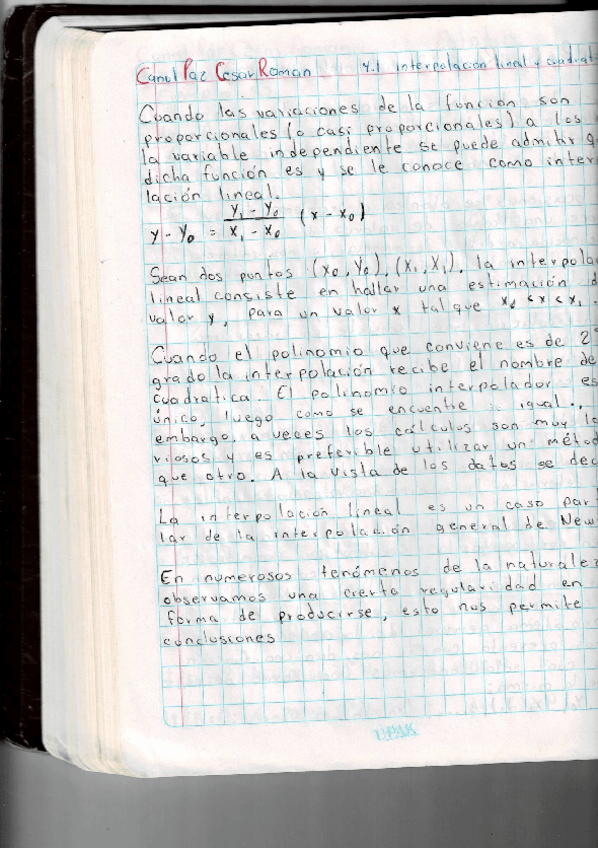 Canul Paz Cesar Roman 4.1 interpolacion lineal y cuadrat
Cuando las variaciones de la función son
proporcionales (o casi proporcionales) a los
la variable independiente se puede admitir q
dicha función es y se le conoce como inter
lación lineal.
y - y₀ = \frac{y₁ - y₀}{x₁ - x₀} (x - x₀)
Sean dos puntos (x₀, y₀), (x₁, x₁), la interpola
lineal consiste en hallar una estimación d
valor y, para un valor x tal que x₀ < x < x₁.
Cuando el polinomio que conviene es de 2
grado la interpolación recibe el nombre de
cuadratica. El polinomio interpolador es
único, luego como se encuentre igual.,
embargo, a veces los cálculos son muy la
riosos y es preferible utilizar un métod
que otro. A la vista de los datos se dec
La interpolación lineal es un caso part
lar de la interpolación general de New
En numerosos fenómenos de la naturalez
observamos una cierta regularidad en
forma de producirse, esto nos permite
conclusiones